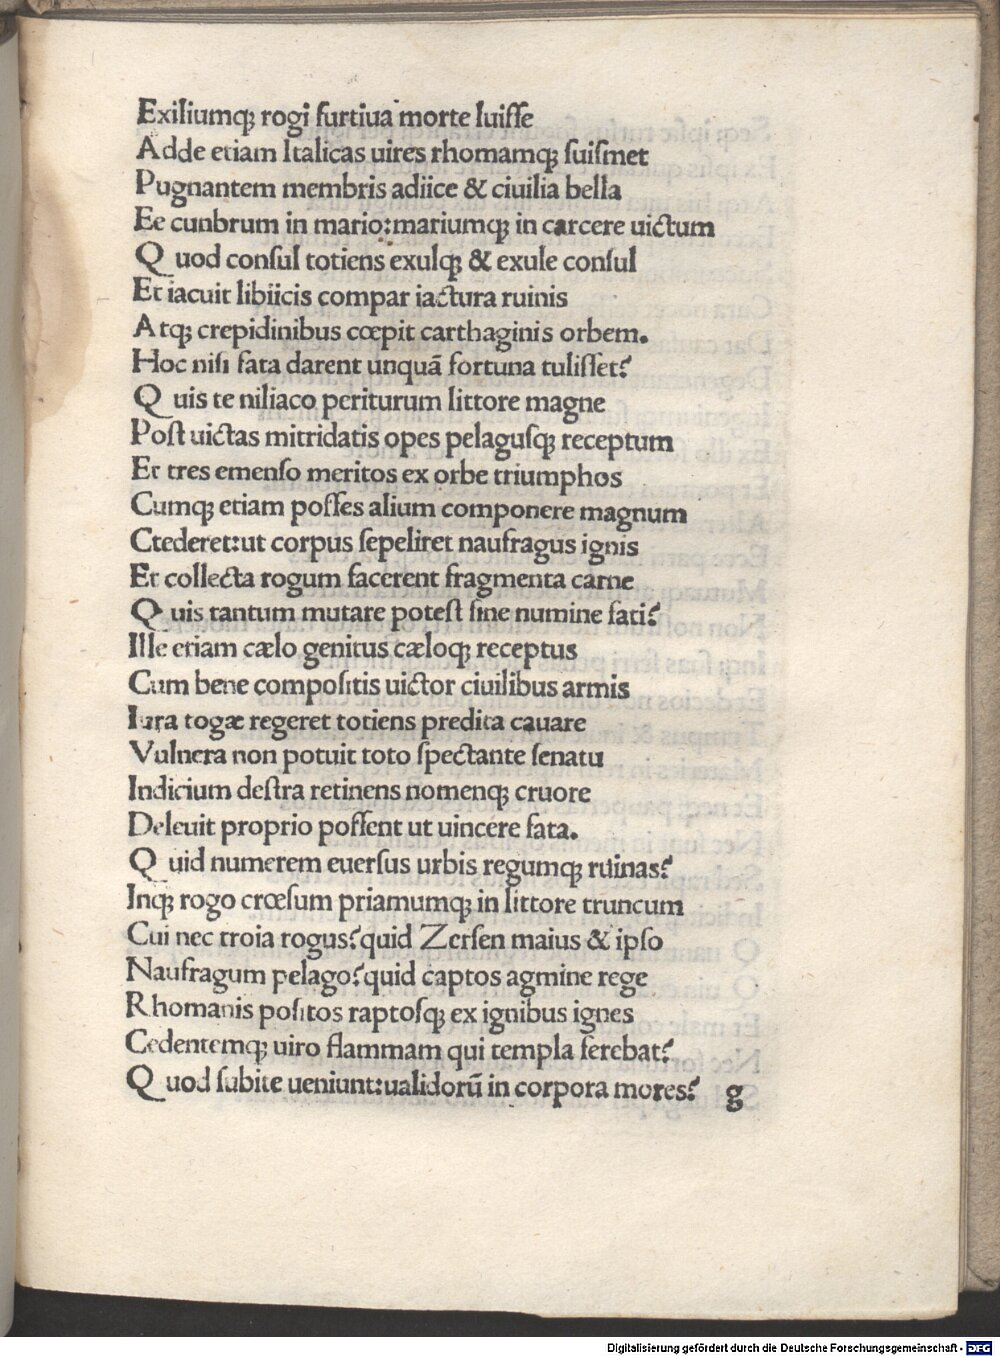 Exiliumqꝫ rogi furtiua morte luiſſe
Adde etiam Italicas uires rhomamqꝫ ſuiſmet
Pugnantem membris adiice & ciuilia bella
Ee cunbrum in mario:mariumqꝫ in carcere uictum
Quod conſul totiens exulqꝫ & exule conſul
Et iacuit libiicis compar iactura ruinis
Atqꝫ crepidinibus cœpit carthaginis orbem.
Hoc niſi fata darent unquã fortuna tuliſſet?
Quis te niliaco periturum littore magne
Poſt uictas mitridatis opes pelaguſqꝫ receptum
Et tres emenſo meritos ex orbe triumphos
Cumqꝫ etiam poſſes alium componere magnum
Ctederet:ut corpus ſepeliret naufragus ignis
Et collecta rogum facerent fragmenta carne
Quis tantum mutare poteſt ſine numine fati?
Ille etiam cælo genitus cæloqꝫ receptus
Cum bene compoſitis uictor ciuilibus armis
Iura togæ regeret totiens predita cauare
Vulnera non potuit toto ſpectante ſenatu
Indicium deſtra retinens nomenqꝫ cruore
Deleuit proprio poſſent ut uincere fata.
Quid numerem euerſus urbis regumqꝫ ruinas?
Inqꝫ rogo crœſum priamumqꝫ in littore truncum
Cui nec troia rogus?quid Zerſen maius & ipſo
Naufragum pelago?quid captos agmine rege
Rhomanis poſitos raptoſqꝫ ex ignibus ignes
Cedentemqꝫ uiro flammam qui templa ferebat?
Quod ſubite ueniunt:ualidorũ in corpora mores? g
Digitalisierung gefördert durch die Deutsche Forschungsgemeinschaft - DFG